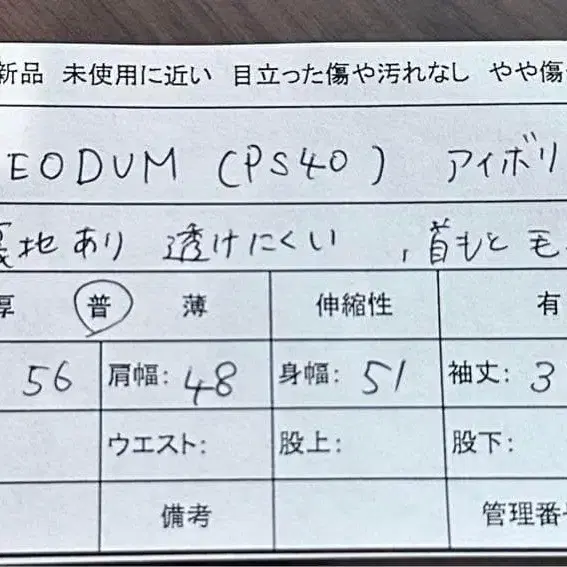 新品 未使用に近い 目立った傷や汚れなし やや傷
EODUM (PS40) アイボリ
裏地あり 透けにくい , 首もと モ
厚 普 薄 伸縮性 有
56 肩幅: 48 身幅: 51 袖丈: 3
ウエスト: 股上: 股下:
備考 管理番